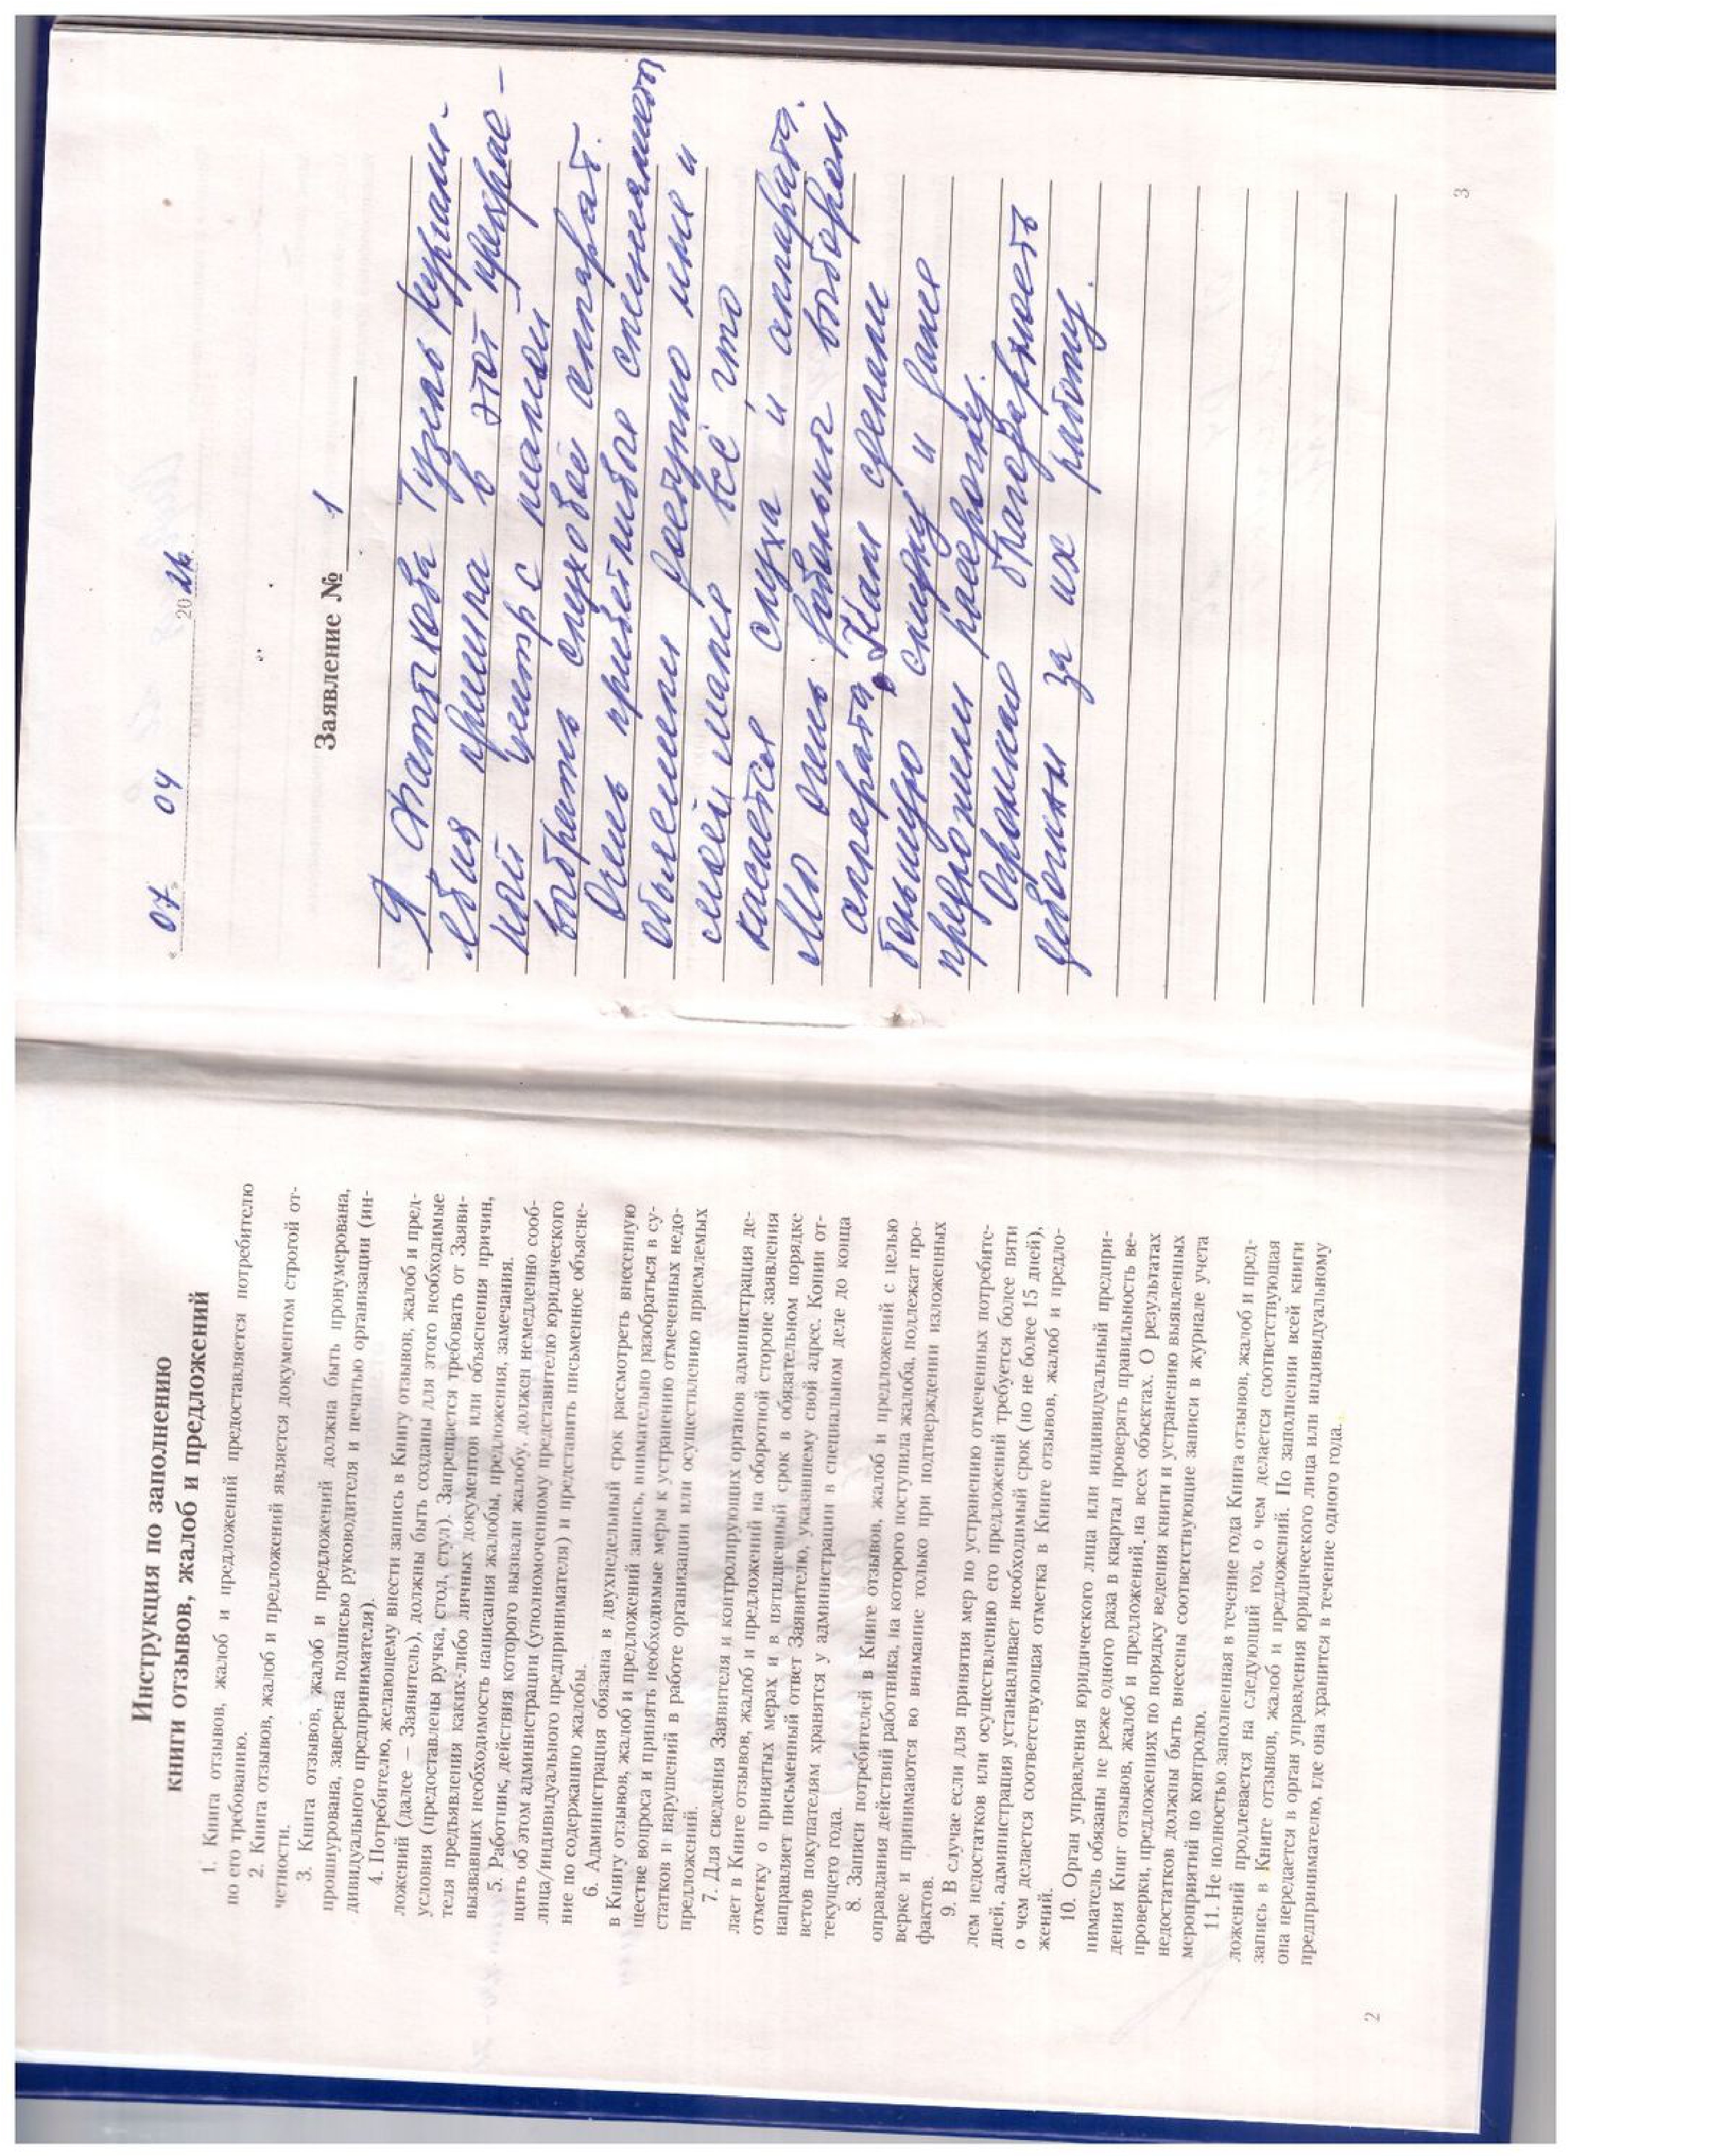 Инструкция по заполнению
книги отзывов, жалоб и предложений
1. Книга отзывов, жалоб и предложений предоставляется потребителю
по его требованию.
2. Книга отзывов, жалоб и предложений является документом строгой от-
четности.
3. Книга отзывов, жалоб и предложений должна быть пронумерована,
прошнурована, заверена подписью руководителя и печатью организации (ин-
дивидуального предпринимателя).
4. Потребителю, желающему внести запись в Книгу отзывов, жалоб и пред-
ложений (далее – Заявитель), должны быть созданы для этого необходимые
условия (предоставлены ручка, стол, стул). Запрещается требовать от Заяви-
теля предъявления каких-либо личных документов или объяснения причин,
вызвавших необходимость написания жалобы, предложения, замечания.
5. Работник, действия которого вызвали жалобу, должен немедленно сооб-
щить об этом администрации (уполномоченному представителю юридического
лица/индивидуального предпринимателя) и представить письменное объясне-
ние по содержанию жалобы.
6. Администрация обязана в двухнедельный срок рассмотреть внесенную
в Книгу отзывов, жалоб и предложений запись, внимательно разобраться в су-
ществе вопроса и принять необходимые меры к устранению отмеченных недо-
статков и нарушений в работе организации или осуществлению приемлемых
предложений.
7. Для сведения Заявителя и контролирующих органов администрация де-
лает в Книге отзывов, жалоб и предложений на оборотной стороне заявления
отметку о принятых мерах и в пятидневный срок в обязательном порядке
направляет письменный ответ Заявителю, указавшему свой адрес. Копии от-
ветов покупателям хранятся у администрации в специальном деле до конца
текущего года.
8. Записи потребителей в Книге отзывов, жалоб и предложений с целью
оправдания действий работника, на которого поступила жалоба, подлежат про-
верке и принимаются во внимание только при подтверждении изложенных
фактов.
9. В случае если для принятия мер по устранению отмеченных потребите-
лем недостатков или осуществлению его предложений требуется более пяти
дней, администрация устанавливает необходимый срок (но не более 15 дней),
о чем делается соответствующая отметка в Книге отзывов, жалоб и предло-
жений.
10. Орган управления юридического лица или индивидуальный предпри-
ниматель обязаны не реже одного раза в квартал проверять правильность ве-
дения Книг отзывов, жалоб и предложений на всех объектах. О результатах
проверки, предложениях по порядку ведения книги и устранению выявленных
недостатков должны быть внесены соответствующие записи в журнале учета
мероприятий по контролю.
11. Не полностью заполненная в течение года Книга отзывов, жалоб и пред-
ложений продлевается на следующий год, о чем делается соответствующая
запись в Книге отзывов, жалоб и предложений. По заполнении всей книги
она передается в орган управления юридического лица или индивидуальному
предпринимателю, где она хранится в течение одного года.
2
«07» 04 20
Заявление № 1
Я
пришла в этот прекрас-
ный центр с мамой
выбрать слуховой аппарат.
Очень приветливые специалисты
объяснили доступно мне и
моей маме всё что
касается слуха и аппарата.
Мы очень довольны выбором
аппарата. Нам сделали
большую скидку и даже
предложили рассрочку.
Огромная благодарность
девочкам за их работу.
3